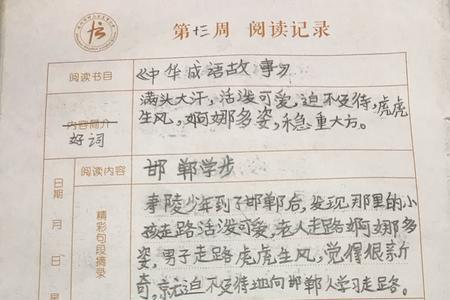 第十三周 阅读记录
阅读书目
《中华成语故事》
内容简介
好词
满头大汗,活泼可爱,迫不及待,虎虎
生风,婀娜多姿,稳重大方。
阅读内容
邯郸学步
日期 月 日 星
精彩句段摘录
寿陵少年到了邯郸后,发现,那里的小
孩走路活泼可爱,老人走路婀娜多
姿,男子走路虎虎生风,觉得很新
奇,就迫不及待地向邯郸人学习走路。